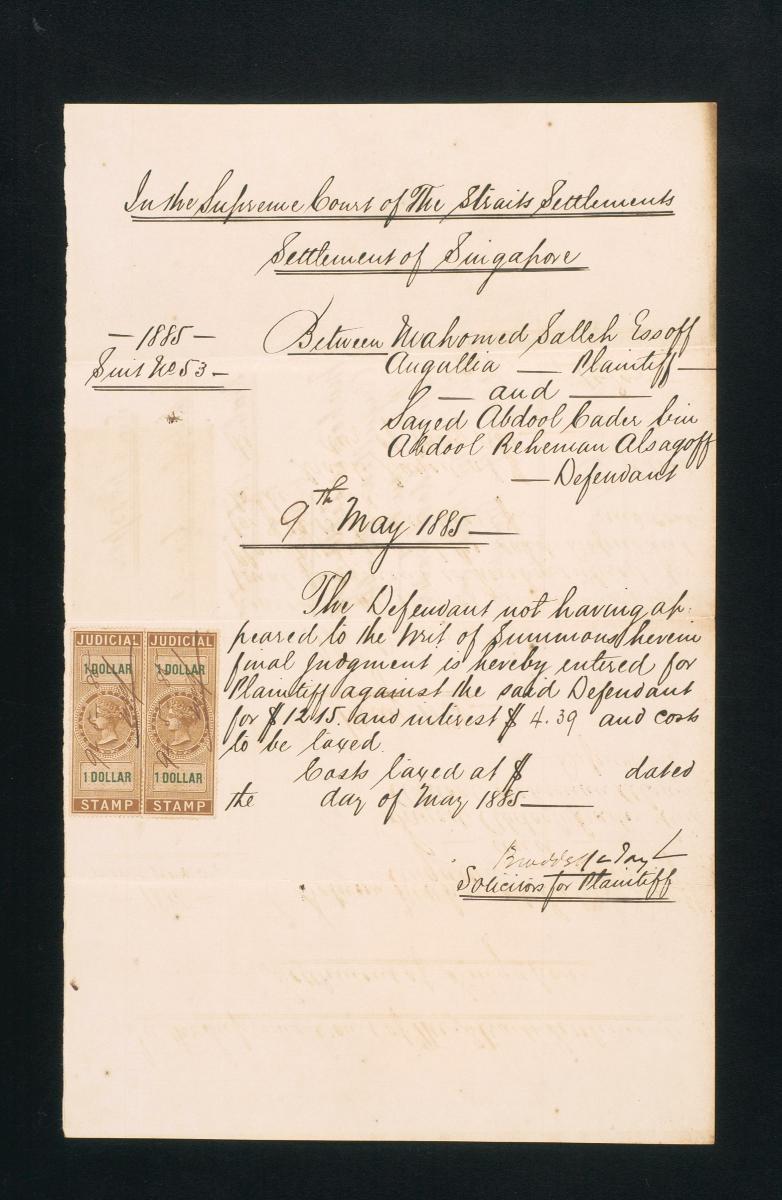 In the Supreme Court of The Straits Settlements
Settlement of Singapore
— 1885 —
Suit No 53 —
Between Mahomed Salleh Essoff
Angullia — Plaintiff —
— and —
Sayed Abdool Cader bin
Abdool Reheman Alsagoff
— Defendant
9th May 1885 —
The Defendant not having ap-
peared to the Writ of Summons herein
final Judgment is hereby entered for
Plaintiff against the said Defendant
for $1215 and interest $4.39 and costs
to be taxed.
Costs taxed at $ dated
the day of May 1885 —
Solicitors for Plaintiff
JUDICIAL
1 DOLLAR
1 DOLLAR
STAMP
JUDICIAL
1 DOLLAR
1 DOLLAR
STAMP